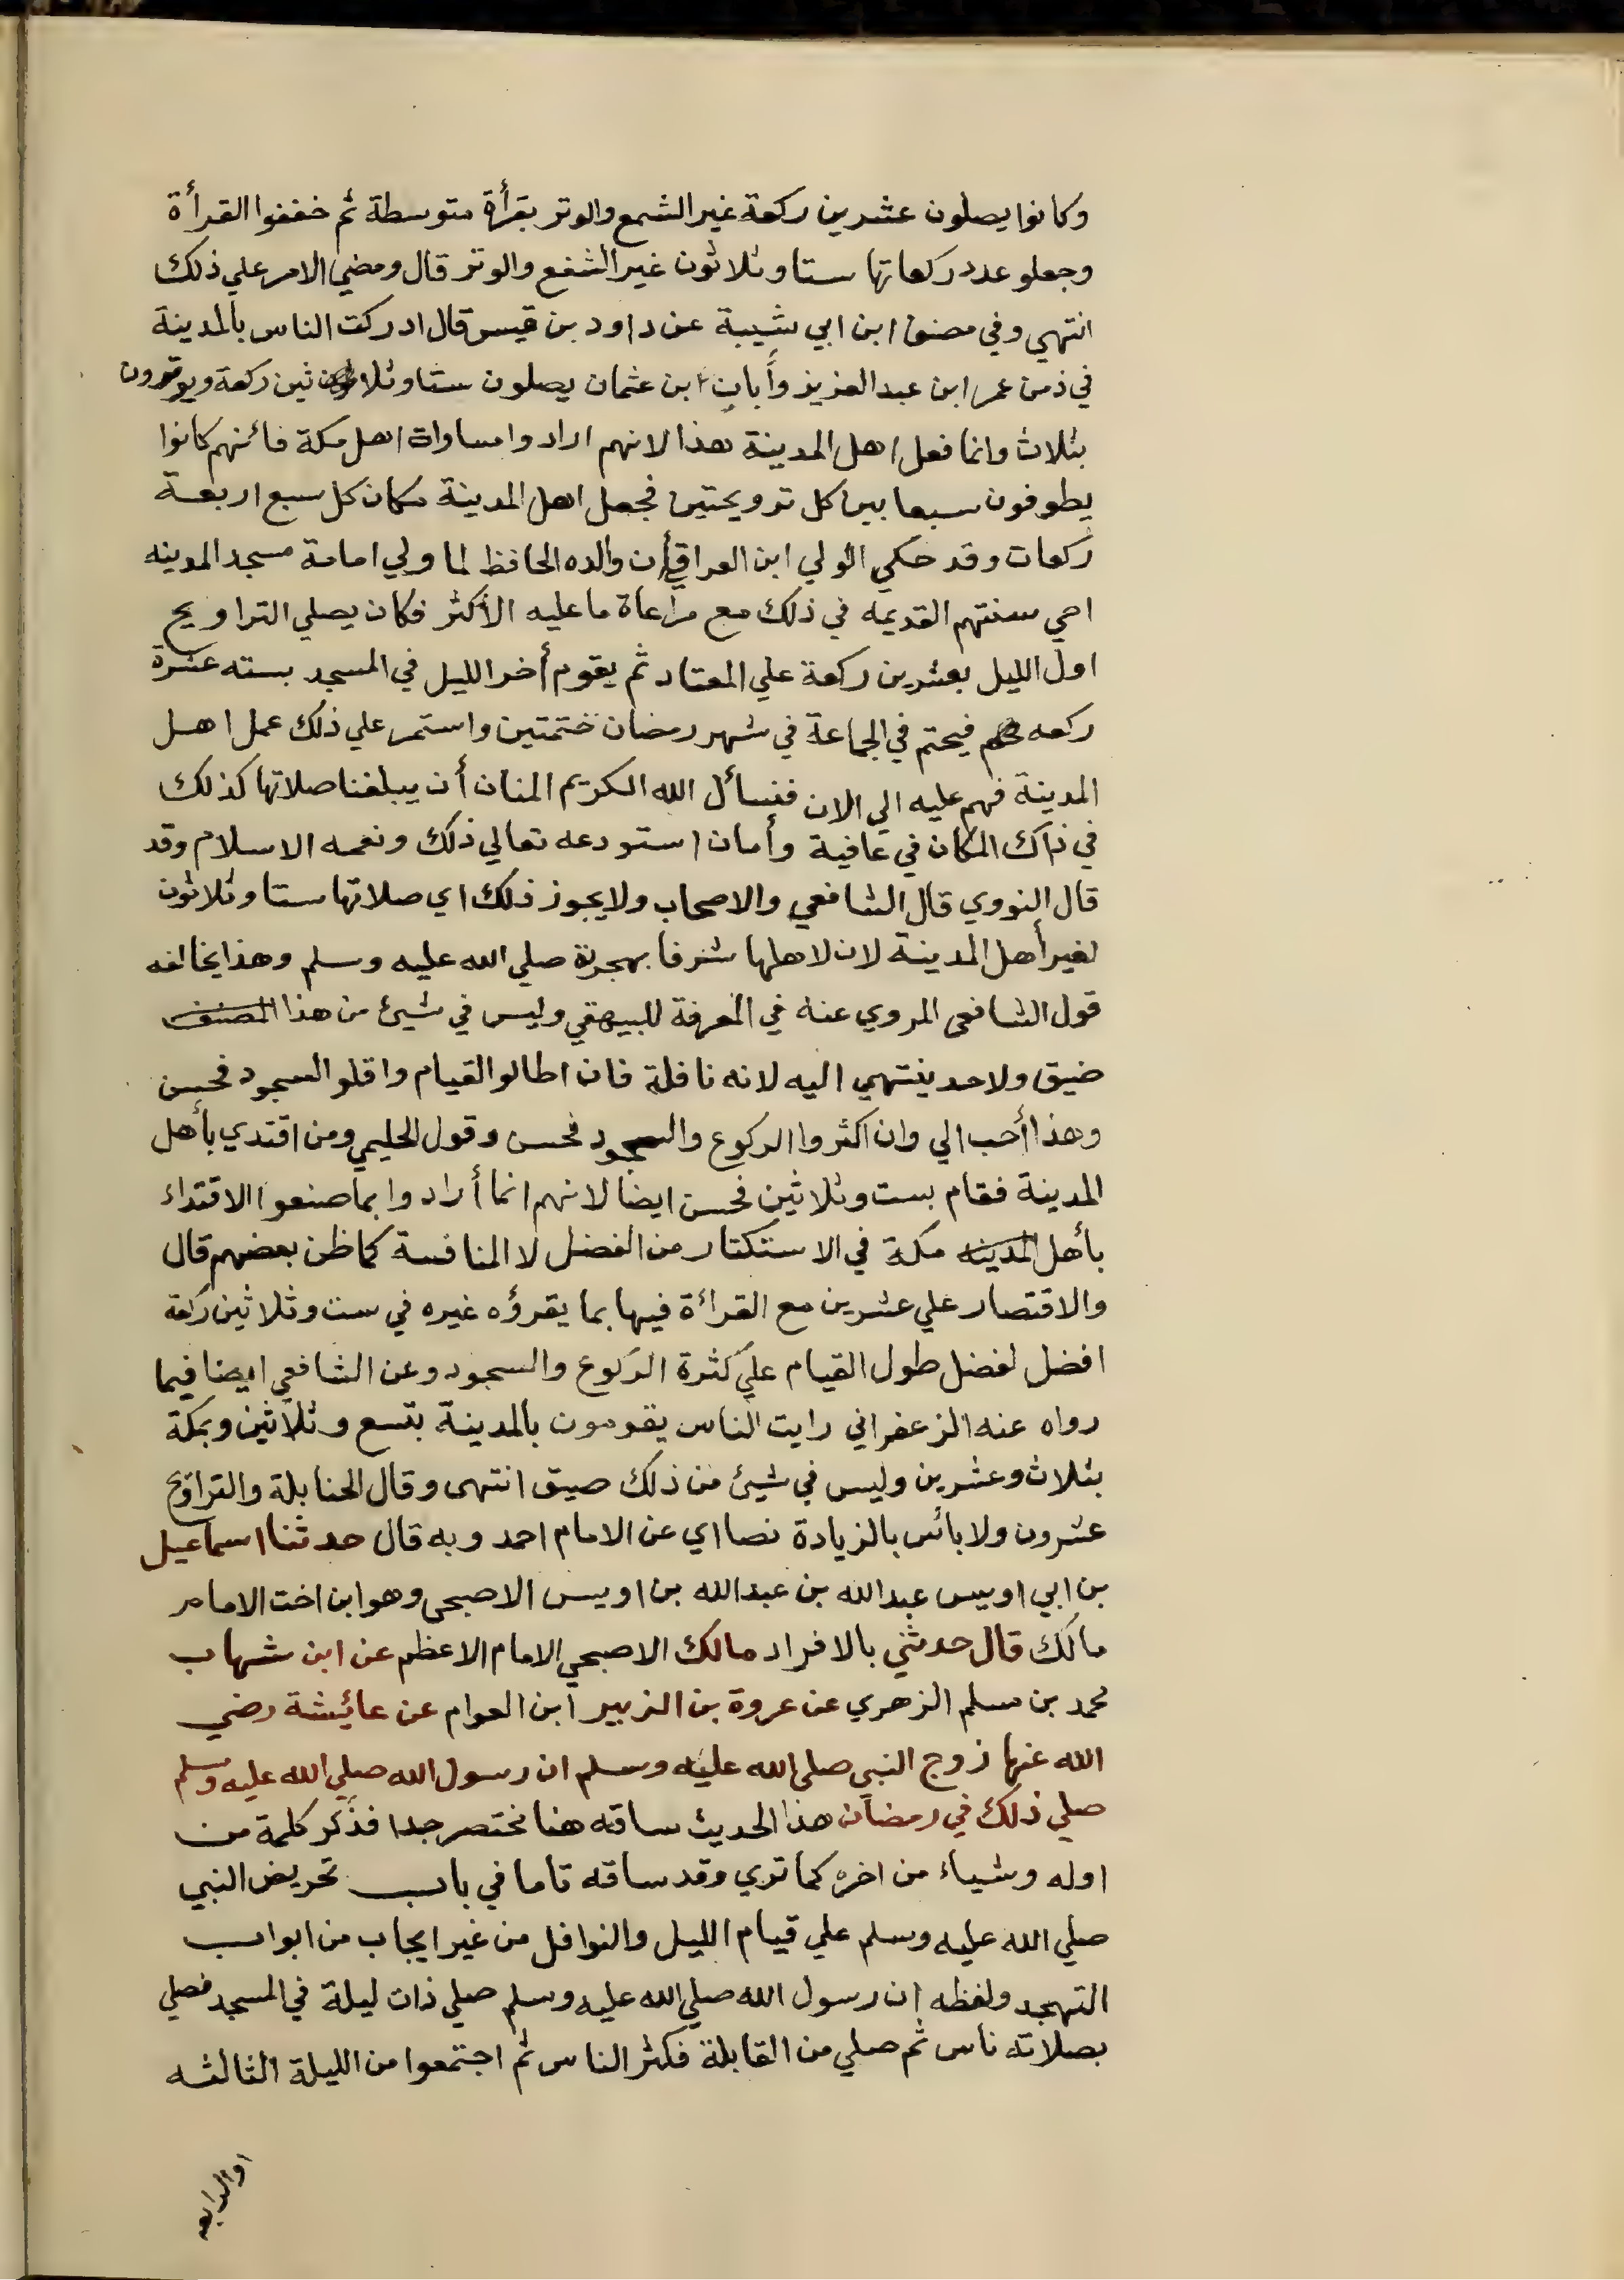 وكانوا يصلون عشرين ركعة غير الشمع والوتر بقرأة متوسطة ثم خففوا القرأة
وجعلو عدد ركعاتها ستا وثلاثون غير الشفع والوتر قال ومضي الامر علي ذلك
انتهي وفي مصنف ابن ابي شيبة عن داود بن قيس قال ادركت الناس بالمدينة
في ذمن عمر ابن عبد العزيز وأبان ابن عثمان يصلون ستا وثلا ثين ركعة ويوترون
بثلاث وانما فعل اهل المدينة هذا لانهم ارادوا مساواة اهل مكة فانهم كانوا
يطوفون سبعا بين كل ترويحتين فجعل اهل المدينة مكان كل سبع اربعة
ركعات وقد حكي الولي ابن العراقي أن والده الحافظ لما ولي امامة مسجد المدينه
احي سنتهم القديمه في ذلك مع مراعاة ما عليه الأكثر فكان يصلي التراويح
اول الليل بعشرين ركعة علي المعتاد ثم يقوم أخر الليل في المسجد بسته عشرة
ركعه فيختم في الجماعة في شهر رمضان ختمتين واستمر علي ذلك عمل اهل
المدينة فهم عليه الي الان فنسأل الله الكريم المنان أن يبلغنا صلاتها كذلك
في ذاك المكان في عافية وأمان استودعه تعالي ذلك ونعمه الاسلام وقد
قال النووي قال الشافعي والاصحاب ولا يجوز ذلك اي صلاتها ستا وثلاثون
لغير أهل المدينة لان لاهلها شرفا بهجرته صلي الله عليه وسلم وهذا يخالفه
قول الشافعي المروي عنه في المعرفة للبيهقي وليس في شيئ من هذا المصنف
ضيق ولا حد ينتهي اليه لانه نافلة فان اطالو القيام واقلو السجود فحسن
وهذا أحب الي وان اكثروا الركوع والسجود فحسن وقول الحليمي ومن اقتدي بأهل
المدينة فقام بست وثلاثين فحسن ايضا لانهم انما أرادوا بما صنعوا الاقتداء
بأهل المدينه مكة في الاستكتار من الفضل لا المنافسة كما ظن بعضهم قال
والاقتصار علي عشرين مع القرائة فيها بما يقرؤه غيره في ست وثلاثين ركعة
افضل لفضل طول القيام علي كثرة الركوع والسجود وعن الشافعي ايضا فيما
رواه عنه الزعفراني رايت الناس يقومون بالمدينة بتسع وثلاثين وبمكة
بثلاث وعشرين وليس في شيئ من ذلك صيق انتهى وقال الحنابلة والتراويح
عشرون ولا بائس بالزيادة نصا اي عن الامام احمد وبه قال حدثنا اسماعيل
بن ابي اويس عبد الله بن عبدالله بن اويس الاصبحى وهو ابن اخت الامام
مالك قال حدثني بالافراد مالك الاصبحي الامام الاعظم عن ابن شهاب
محمد بن مسلم الزهري عن عروة بن الزبير ابن العوام عن عائيشة رضي
الله عنها زوج النبي صلي الله عليه وسلم ان رسول الله صلي الله عليه وسلم
صلي ذلك في رمضان هذا الحديث ساقه هنا مختصر جدا فذكر كلمة من
اوله وشياء من اخره كما تري وقد ساقه تاما في باب تحريض النبي
صلي الله عليه وسلم علي قيام الليل والنوافل من غير ايجاب من ابواب
التهجد ولفظه ان رسول الله صلي الله عليه وسلم صلي ذات ليلة في المسجد فصلي
بصلاته ناس ثم صلي من القابلة فكثر الناس ثم اجتمعوا من الليلة الثالثه
اوالرابعه